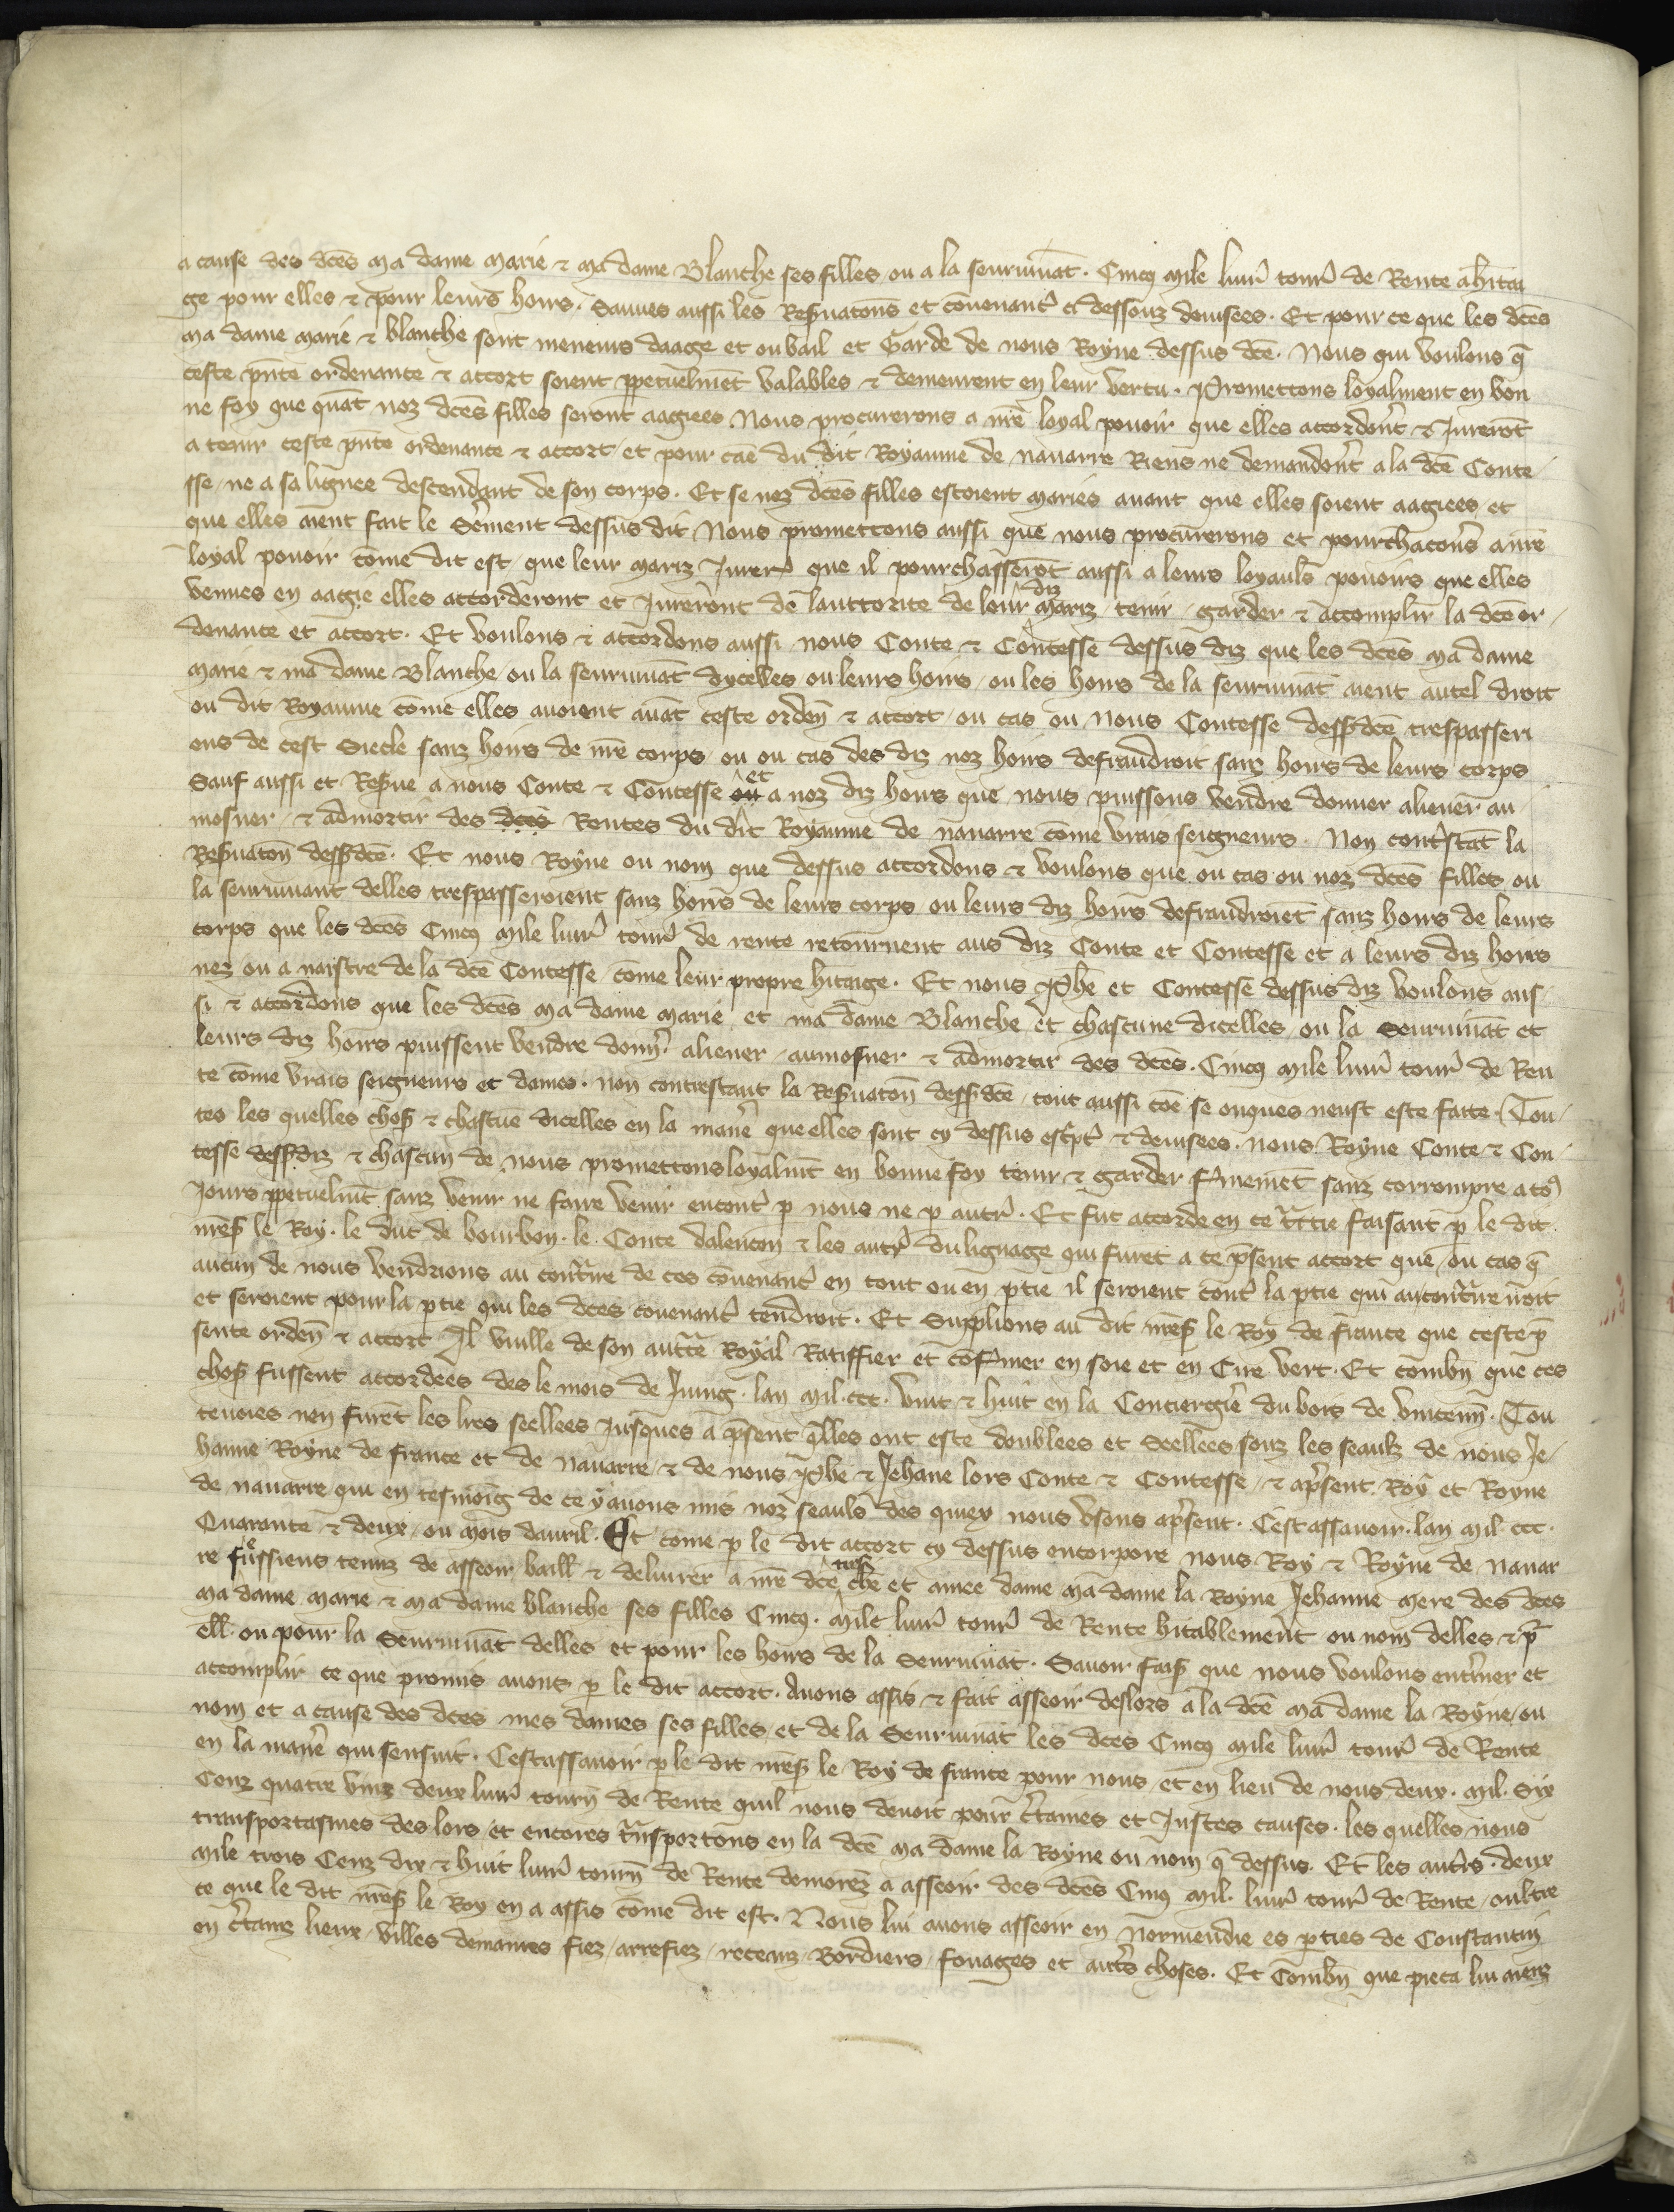 a cause des dc̄es ma dame marie ⁊ ma dame Blanche ses filles ou a la seurviuāt . Cincq mile liur̄ tour̄ de Rente a h̄itai
ge pour elles ⁊ pour leurs hoirs . Sauues aussi les Reẜuacōns et couenanc̄ ci dessouz deuisees . Et pour ce que les dc̄es
ma dame marie ⁊ blanche sont meneurs daage et ou bail et Garde de nous Royne dessus dc̄e . Nous qui voulons q̄
ceste pn̄te ordenance ⁊ accort soient ꝑpetuelmēt valables ⁊ demeurent en leur vertu . Promettons loyalment en bon
ne foy que quāt noz dc̄es filles seront aagiees Nous procurerons a nr̄e loyal pouoir que elles accordont̄ ⁊ Jurerōt
a tenir ceste pn̄te ordenance ⁊ accort / et pour cāe du dit Royaume de nauarre Riens ne demandont̄ a la dc̄e Conte
sse / ne a sa lignee descendant de son corps . Et se noz dc̄es filles estoient mariés auant que elles soient aagiees / et
que elles aient fait le Ser̄ment dessus dit Nous promettons aussi que nous procurerons et pourchacerōs a nr̄e
loyal pouoir cōme dit est / que leur mariz Jurer̄ que il pourchasserōt aussi a leurs loyauls pouoirs que elles
venues en aagie elles accorderont et Jureront de lauctorite de leur diz mariz / tenir / garder ⁊ accomplir la dc̄e or
denance et accort . Et voulons ⁊ accordons aussi nous Conte ⁊ Contesse dessus diz que les dc̄es ma dame
marie ⁊ ma dame Blanche / ou la seurviuāt dycelles / ou leurs hoirs / ou les hoirs de la seurviuāt aient autel droit
ou dit Royaume cōme elles auoient auāt ceste ordeñ ⁊ accort / ou cas ou Nous Contesse dess⁹dc̄e trespasseri
ons de cest Siecle sanz hoirs de nr̄e corps / ou ou cas des diz noz hoirs defraudroit sanz hoirs de leurs corps
Sauf aussi et Reẜue a nous Conte ⁊ Contesse ou et a noz diz hoirs que nous puissons vendre donner aliener au
mosner / ⁊ admortir des dc̄es Rentes du dit Royaume de nauarre cōme vrais seigneurs . Non cont̄stāt la
Reẜuacoñ dess⁹dc̄e . Et nous Royne ou nom que dessus accordons ⁊ voulons que ou cas ou noz dc̄es filles ou
la seurviuant delles trespasseroient sanz hoirs de leurs corps / ou leurs diz hoirs defraudroiēt sanz hoirs de leurs
corps que les dc̄es Cincq mile liur̄ tour̄ de rente retournent aus diz Conte et Contesse et a leurs diz hoirs
nez ou a naistre de la dc̄e Contesse / cōme leur propre h̄itaige . Et nous Phē et Contesse dessus diz voulons aus
si ⁊ accordons que les dc̄es ma dame marie et ma dame Blanche et chascune dicelles / ou la Seurviuāt et
leurs diz hoirs puissent vendre donn̄ aliener / aumosner ⁊ admortir des dc̄es . Cincq mile liur̄ tour̄ de Ren
te cōme vrais seigneurs et dames . non contrestant la Reẜuacoñ dess⁹dc̄e / tout aussi cōe se onques neust este faite . Tou
tes les quelles choẜ ⁊ chascūe dicelles en la manēr que elles sont cy dessus escptˀ ⁊ deuisees . nous Royne Conte ⁊ Con
tesse dess⁹diz ⁊ chascun de nous promettons loyalmt̄ en bonne foy tenir ⁊ garder fermemēt sanz corrompre a to⁹
Jours ꝑpetuelmt̄ sanz venir ne faire venir encontˀ ꝑ nous ne ꝑ autrˀ . Et fut accorde en ce tr̄ctie faisant ꝑ le dit
mess̄ le Roy . le duc de bourbon . le Conte dalencon ⁊ les autrˀ du lignage qui furēt a ce pr̄sent accort que / ou cas q̄
aucun de nous vendrions au contr̄ire de ces couenancˀ en tout ou en ꝑtie il seroient contˀ la ꝑtie qui au contr̄ire iroit
et seroient pour la ꝑtie qui les dc̄es couenancˀ tendroit . Et Supplions au dit mess̄ le Roy de france que ceste p̄
sente ordeñ ⁊ accort Il vuille de son auctē Royal Ratiffier et cōfermer en soie et en Cire vert . Et combn̄ que ces
choẜ fussent accordees des le mois de Juing . lan mil . ccc . vint ⁊ huit en la Conciergiē du bois de vincenn̄ . Tou
teuoies nen furēt les lr̄es seellees jusques a pr̄sent qˀlles ont este doublees et Seellees souz les seaulz de nous Je
hanne Royne de france et de Nauarre / ⁊ de nous Phē ⁊ Jehane lors Conte ⁊ Contesse / ⁊ apr̄sent Roy et Royne
de nauarre qui en tesmoing de ce y auons mis noz seauls des quiex nous vsons apr̄sent . Cest assauoir . lan mil . ccc .
Quarante ⁊ deux / ou mois dauril . Et come ꝑ le dit accort cy dessus encorpore nous Roy ⁊ Royne de nauar
re fussiens tenuz de asseoir baill̄ ⁊ deliurer a nr̄e dc̄e tres chē et amee dame ma dame la Royne Jehanne mere des dc̄es
ma dame marie ⁊ ma dame blanche ses filles Cincq . mile liur̄ tour̄ de Rente h̄itablement ou nom delles ⁊ pr̄
ell̄ . ou pour la Seurviuāt delles et pour les hoirs de la Seurviuāt . Sauoir faiẜ que nous voulons entˀiner et
accomplir ce que promis auons ꝑ le dit accort . Auons assis ⁊ fait asseoir deslors a la dc̄e ma dame la Royne / ou
nom et a cause des dc̄es mes dames ses filles et de la Seurviuāt les dc̄es Cincq mile liur̄ tour̄ de Rente
en la manēr qui sensuit . Cest assauoir ꝑ le dit mess̄ le Roy de france pour nous et en lieu de nous deux . mil . Six
Cenz quatre vinz deux liur̄ tourn̄ de Rente quil nous deuoit pour cˀtaines et Justes causes . les quelles nous
transportasmes des lors et encores tr̄nsportons en la dc̄e ma dame la Royne ou nom q̄ dessus . Et les autrˀs . deux
mile trois Cenz dix ⁊ huit liur̄ tourn̄ de Rente demorez a asseoir des dc̄es Cincq mil . liur̄ tour̄ de Rente / oultre
ce que le dit mess̄ le Roy en a assis cōme dit est . Nous lui auons asseoir en Normendie es ꝑties de Constantin
en cˀtains lieux / villes demaines fiez / arrefiez / receuz / Bordiers / fouages et autˀs choses . Et Combn̄ que pieca lui aiens